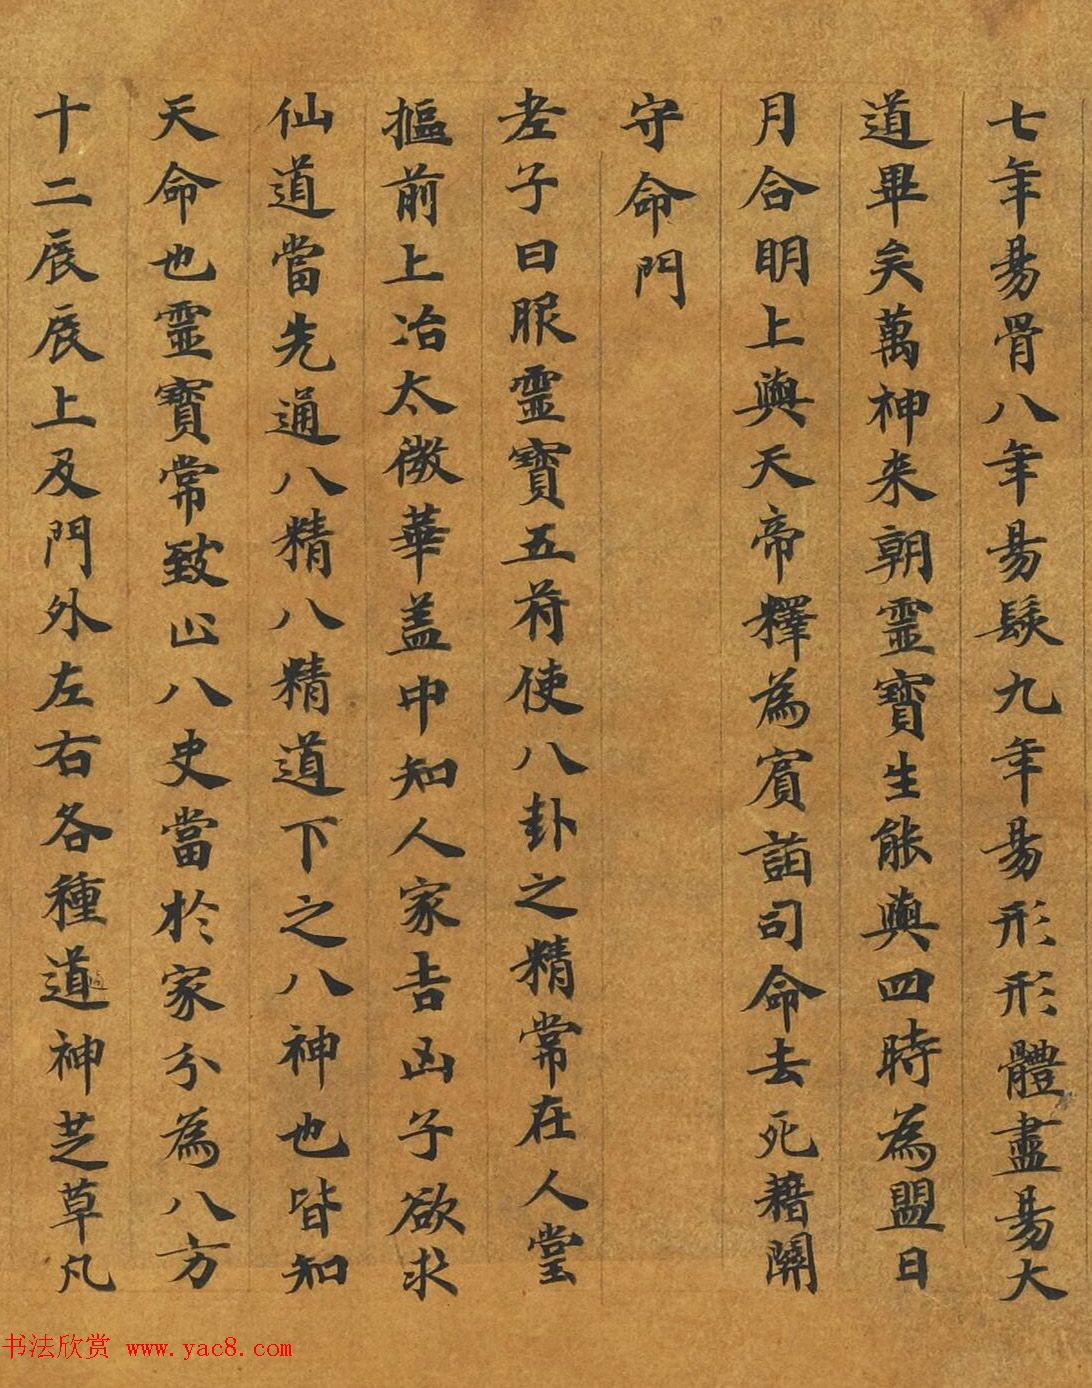 七年易骨八年易髮九年易形形體盡易大
道畢矣萬神来朝靈寶生能與四時為盟日
月合明上與天帝釋為賓詣司命去死藉關
守命門
老子曰服靈寶五符使八卦之精常在人堂
摳前上治太微華盖中知人家吉凶子欲求
仙道當先通八精八精道下之八神也皆知
天命也靈寶常致止八史當於家分為八方
十二辰辰上及門外左右各種道神芝草凡
书法欣赏 www.yac8.com